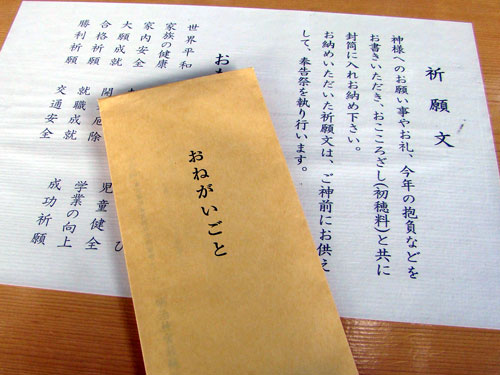 祈願文
神様へのお願い事やお礼、今年の抱負などを
お書きいただき、おこころざし(初穂料)と共に
封筒に入れお納め下さい。
お納めいただいた祈願文は、ご神前にお供え
して、奉告祭を執り行います。
おねがいごと
世界平和
家族の健康
家内安全
大願成就
合格祈願
勝利祈願
交通安全
児童健全
学業の向上
成功祈願